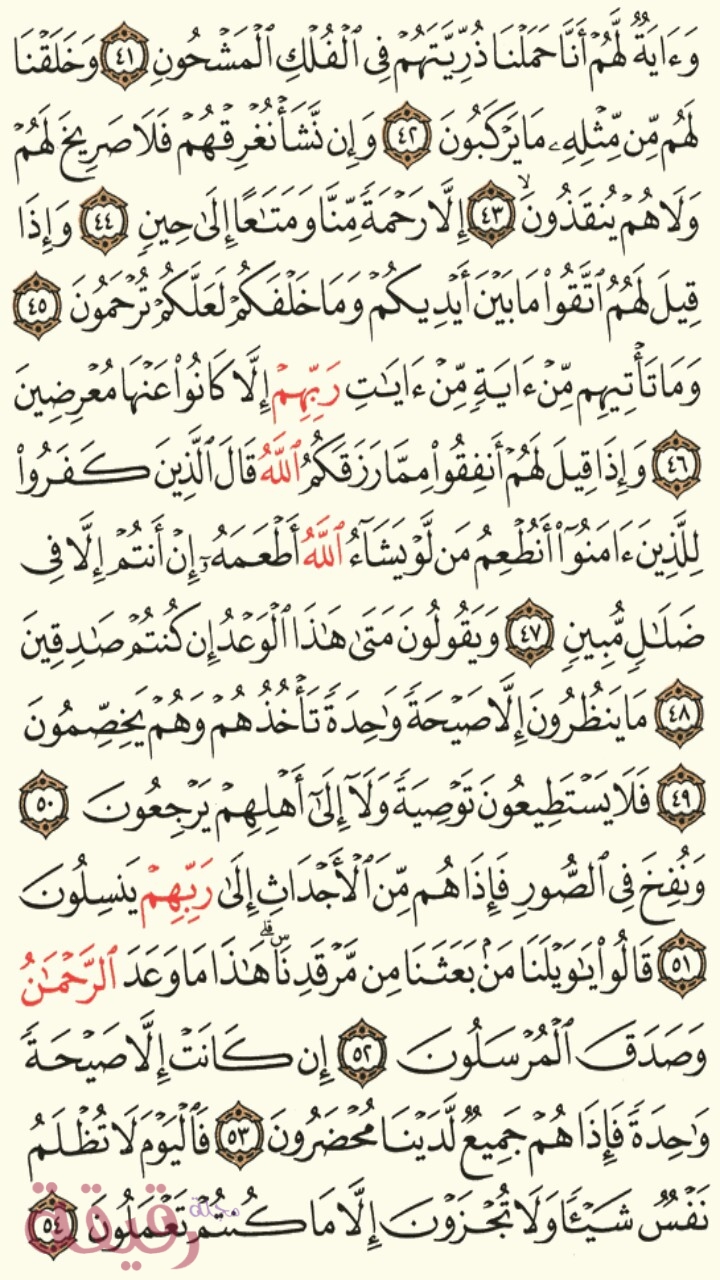 وَءَايَةٌ لَّهُمْ أَنَّا حَمَلْنَا ذُرِّيَّتَهُمْ فِي ٱلْفُلْكِ ٱلْمَشْحُونِ ٤١ وَخَلَقْنَا
لَهُم مِّن مِّثْلِهِۦ مَا يَرْكَبُونَ ٤٢ وَإِن نَّشَأْ نُغْرِقْهُمْ فَلَا صَرِيخَ لَهُمْ
وَلَا هُمْ يُنقَذُونَ ۙ ٤٣ إِلَّا رَحْمَةً مِّنَّا وَمَتَـٰعًا إِلَىٰ حِينٍ ٤٤ وَإِذَا
قِيلَ لَهُمُ ٱتَّقُوا۟ مَا بَيْنَ أَيْدِيكُمْ وَمَا خَلْفَكُمْ لَعَلَّكُمْ تُرْحَمُونَ ٤٥
وَمَا تَأْتِيهِم مِّنْ ءَايَةٍ مِّنْ ءَايَـٰتِ رَبِّهِمْ إِلَّا كَانُوا۟ عَنْهَا مُعْرِضِينَ
٤٦ وَإِذَا قِيلَ لَهُمْ أَنفِقُوا۟ مِمَّا رَزَقَكُمُ ٱللَّهُ قَالَ ٱلَّذِينَ كَفَرُوا۟
لِلَّذِينَ ءَامَنُوٓا۟ أَنُطْعِمُ مَن لَّوْ يَشَآءُ ٱللَّهُ أَطْعَمَهُۥٓ إِنْ أَنتُمْ إِلَّا فِي
ضَلَـٰلٍ مُّبِينٍ ٤٧ وَيَقُولُونَ مَتَىٰ هَـٰذَا ٱلْوَعْدُ إِن كُنتُمْ صَـٰدِقِينَ
٤٨ مَا يَنظُرُونَ إِلَّا صَيْحَةً وَٰحِدَةً تَأْخُذُهُمْ وَهُمْ يَخِصِّمُونَ
٤٩ فَلَا يَسْتَطِيعُونَ تَوْصِيَةً وَلَآ إِلَىٰٓ أَهْلِهِمْ يَرْجِعُونَ ٥٠
وَنُفِخَ فِي ٱلصُّورِ فَإِذَا هُم مِّنَ ٱلْأَجْدَاثِ إِلَىٰ رَبِّهِمْ يَنسِلُونَ
٥١ قَالُوا۟ يَـٰوَيْلَنَا مَنۢ بَعَثَنَا مِن مَّرْقَدِنَا ۜ ۗ هَـٰذَا مَا وَعَدَ ٱلرَّحْمَـٰنُ
وَصَدَقَ ٱلْمُرْسَلُونَ ٥٢ إِن كَانَتْ إِلَّا صَيْحَةً
وَٰحِدَةً فَإِذَا هُمْ جَمِيعٌ لَّدَيْنَا مُحْضَرُونَ ٥٣ فَٱلْيَوْمَ لَا تُظْلَمُ
نَفْسٌ شَيْـًٔا وَلَا تُجْزَوْنَ إِلَّا مَا كُنتُمْ تَعْمَلُونَ ٥٤
مجلة رقيقة